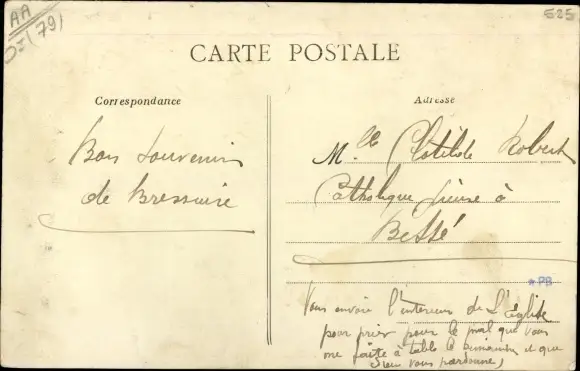 AA
(79)
525
CARTE POSTALE
Correspondance
Adresse
Bon souvenir
de Bressuire
M.lle Clotilde Robert
Catholique à
Bessé
*PB
Vous envoie l'interieur de L'église
pour prier pour le mal que vous
me faite à table le dimanche et que
Dieu vous pardonne